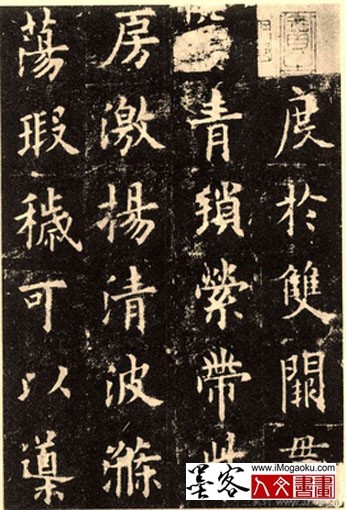 度於雙闕
青瑣縈帶
房激揚清波滌
蕩瑕穢可以導
www.iMogaoku.com
墨客 人文書畫